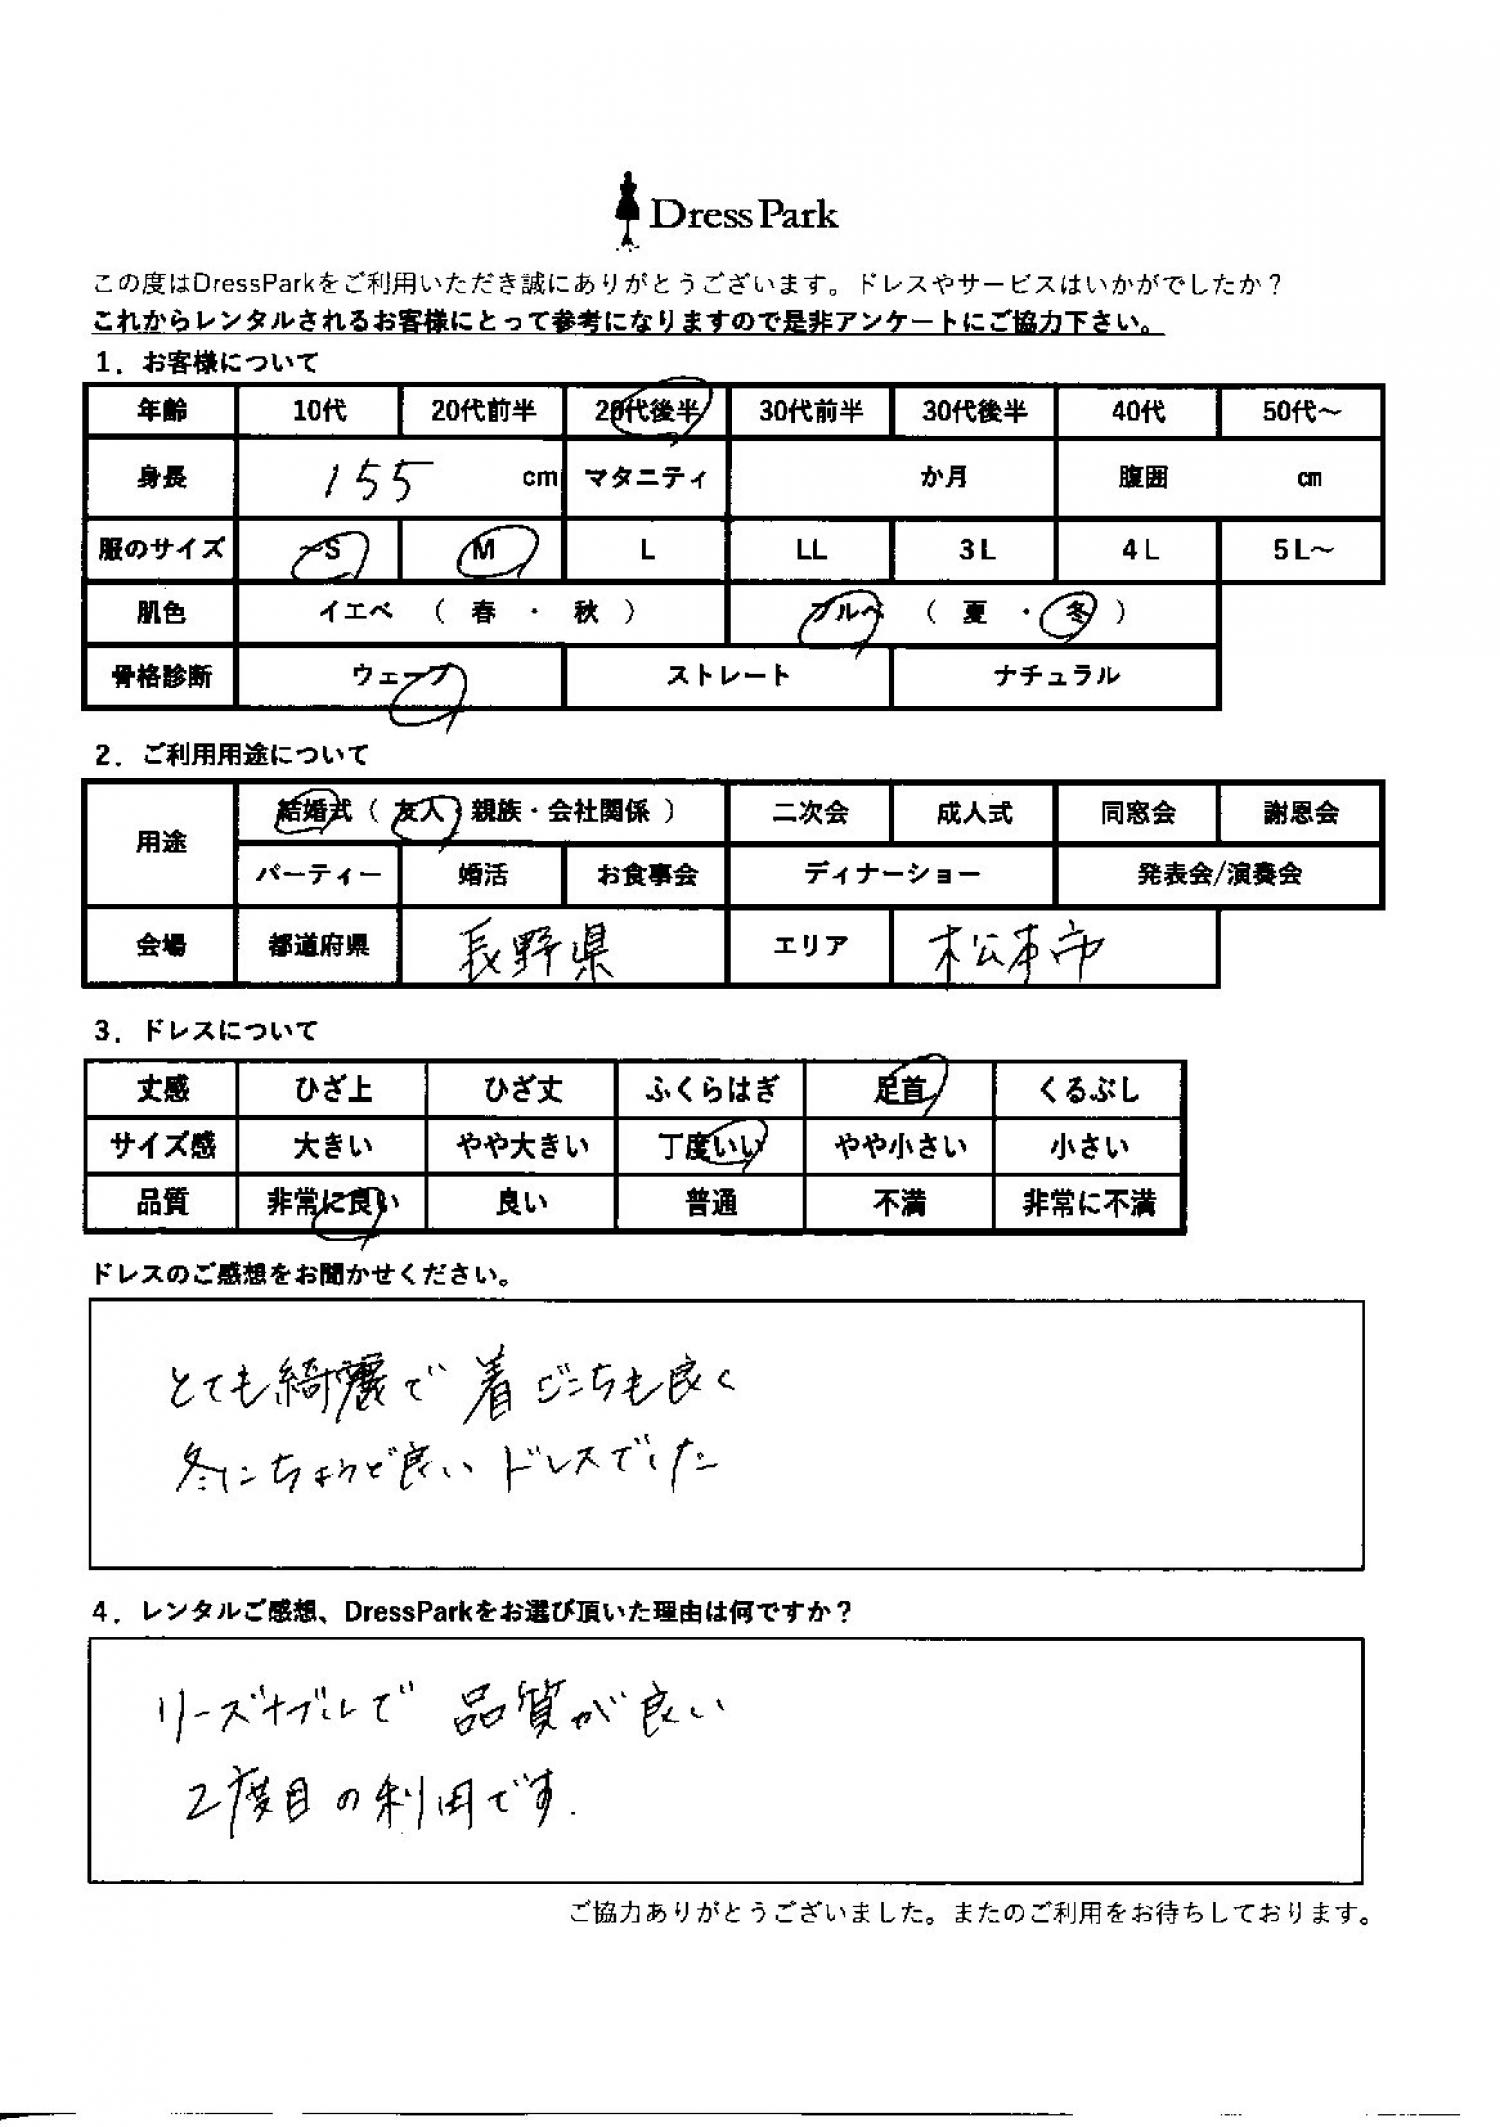 Dress Park
この度はDressParkをご利用いただき誠にありがとうございます。ドレスやサービスはいかがでしたか？
これからレンタルされるお客様にとって参考になりますので是非アンケートにご協力下さい。
1．お客様について
年齢 10代 20代前半 20代後半 30代前半 30代後半 40代 50代～
身長 155 cm マタニティ か月 腹囲 cm
服のサイズ ～S M L LL 3L 4L 5L～
肌色 イエベ （ 春 ・ 秋 ） ブルベ （ 夏 ・ 冬 ）
骨格診断 ウェーブ ストレート ナチュラル
2．ご利用用途について
用途 結婚式（ 友人・親族・会社関係 ） 二次会 成人式 同窓会 謝恩会
パーティー 婚活 お食事会 ディナーショー 発表会/演奏会
会場 都道府県 長野県 エリア 松本市
3．ドレスについて
丈感 ひざ上 ひざ丈 ふくらはぎ 足首 くるぶし
サイズ感 大きい やや大きい 丁度いい やや小さい 小さい
品質 非常に良い 良い 普通 不満 非常に不満
ドレスのご感想をお聞かせください。
とても綺麗で着ごこちも良く
冬にちょうど良いドレスでした
4．レンタルご感想、DressParkをお選び頂いた理由は何ですか？
リーズナブルで品質が良い
2度目の利用です.
ご協力ありがとうございました。またのご利用をお待ちしております。